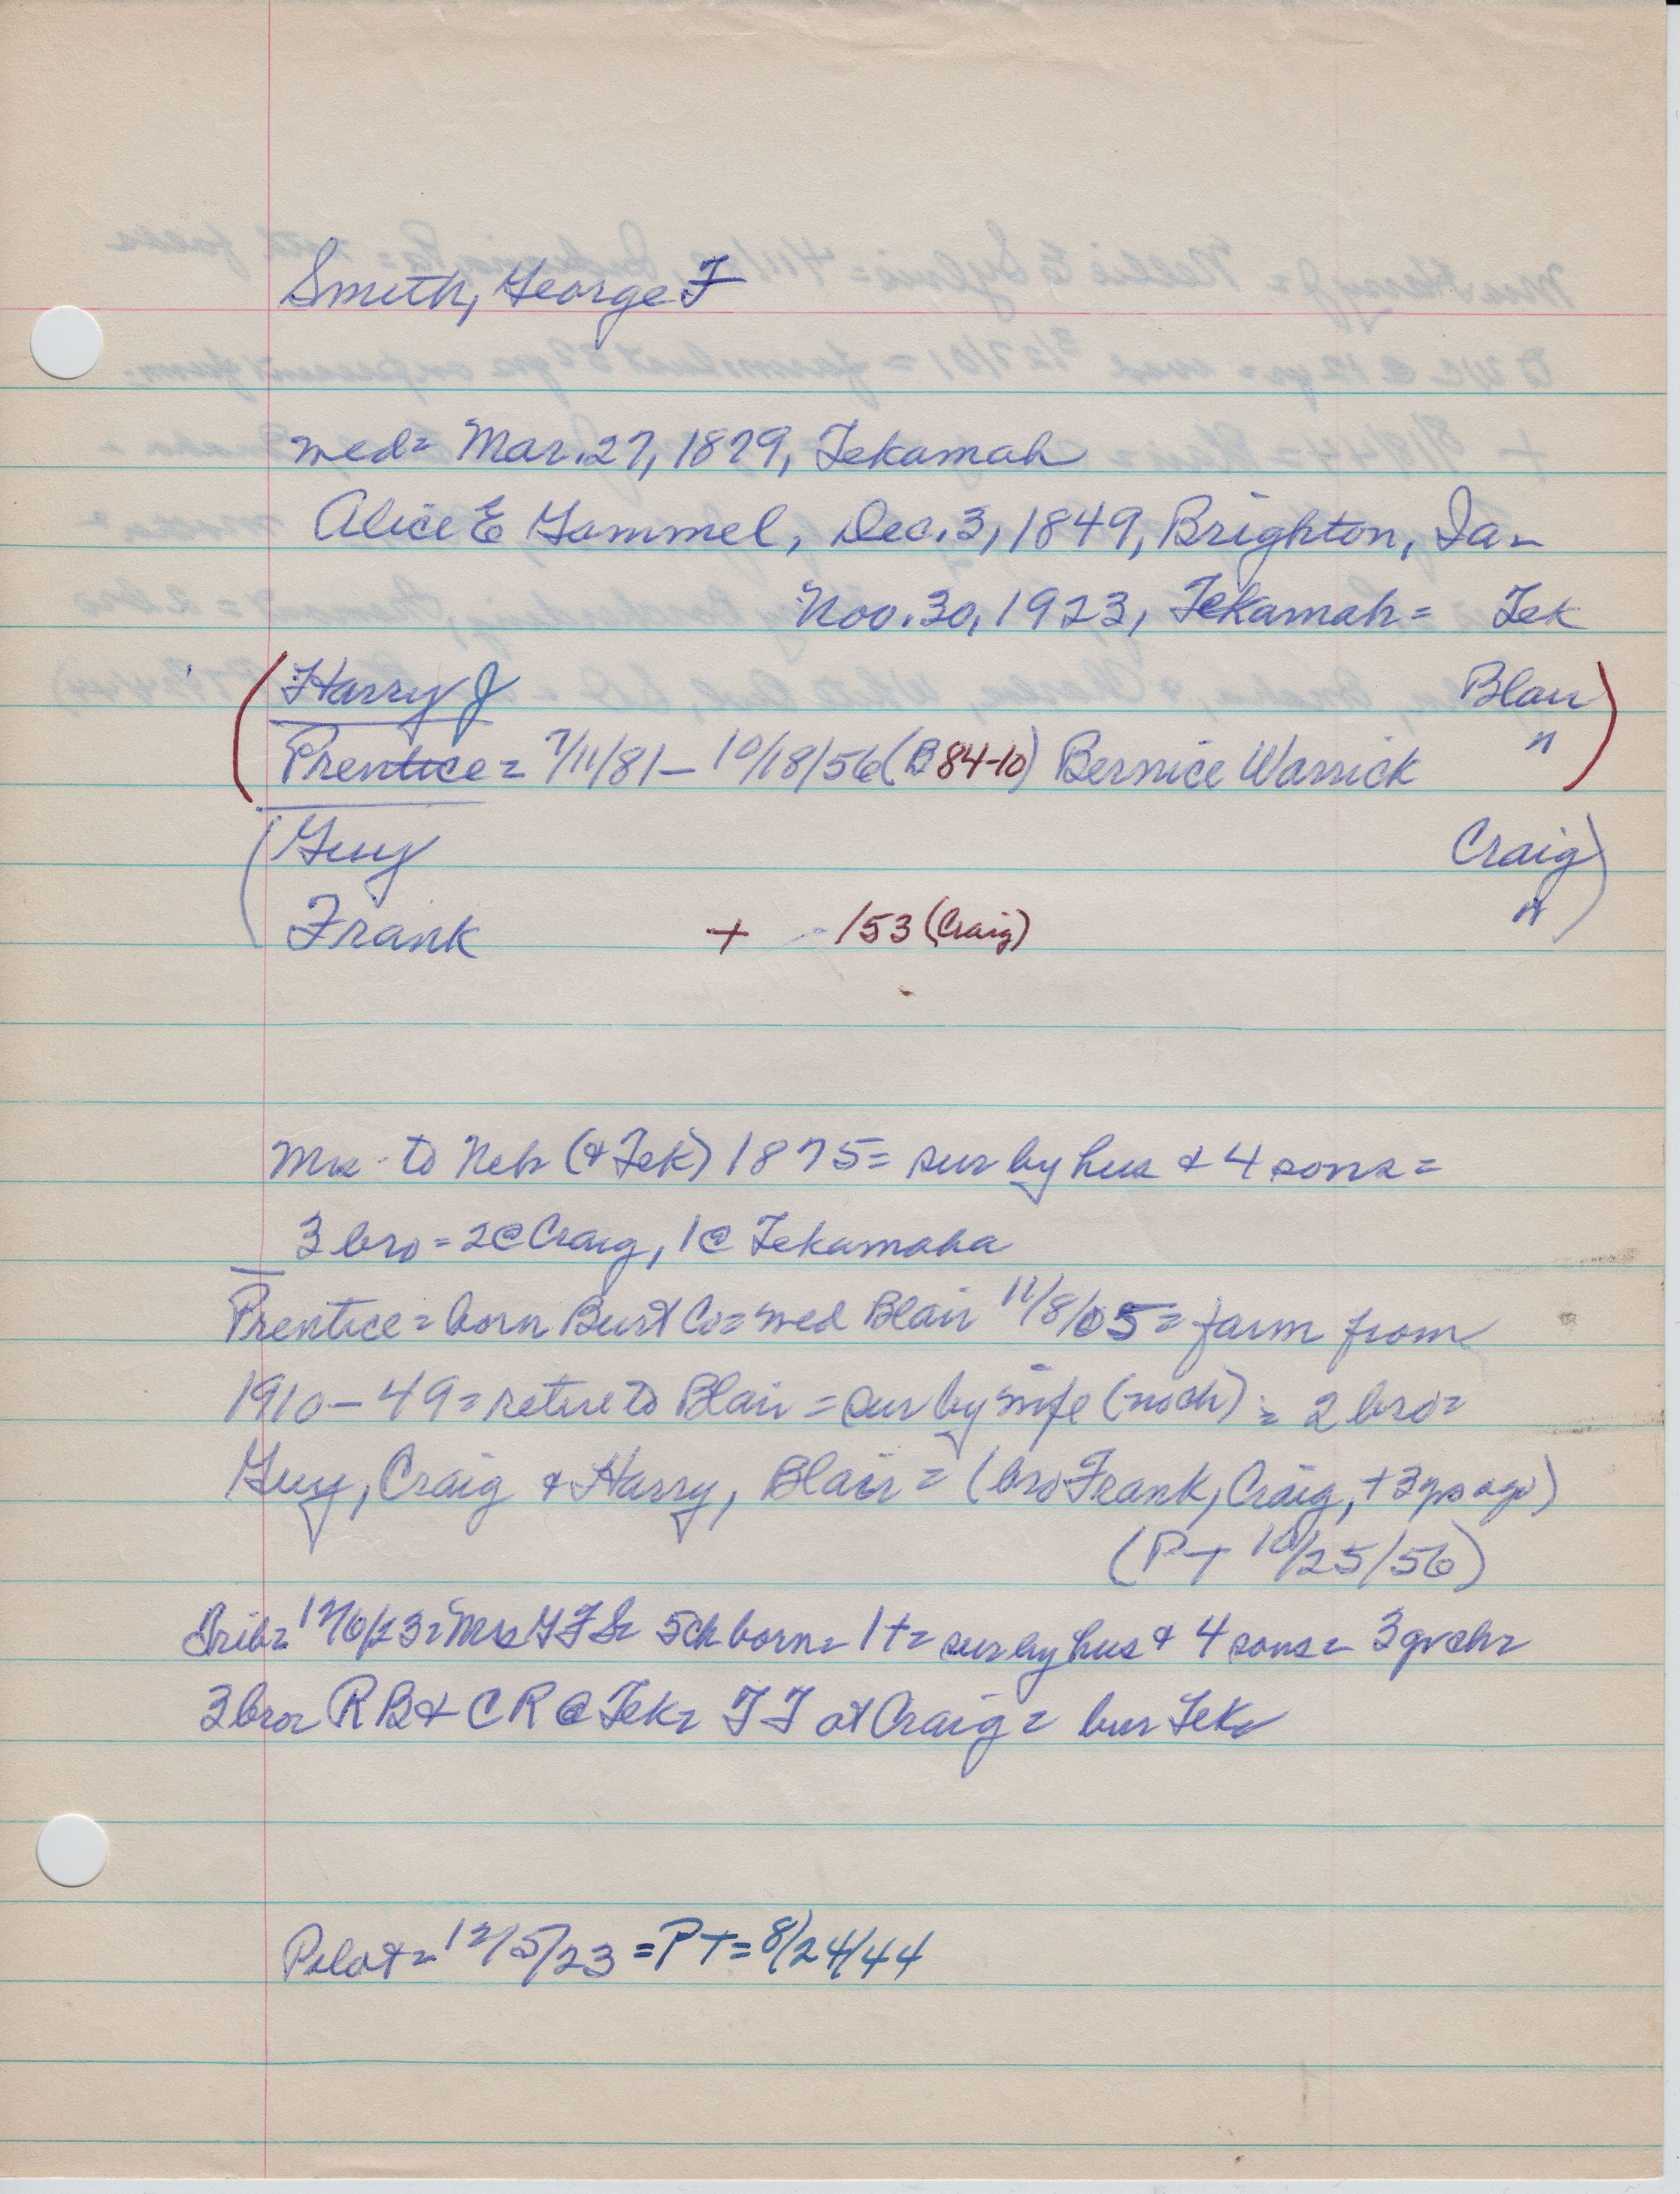 Smith, George F
wed= Mar. 27, 1879, Tekamah
Alice E Gammel, Dec. 3, 1849, Brighton, Ia-
Nov. 30, 1923, Tekamah = Tek
(Harry J Blair)
(Prentice = 7/11/81 - 10/18/56 (B 84-10) Bernice Warrick ")
(Guy Craig)
Frank + /53 (Craig) ")
Mrs to Neb (& Tek) 1875 = sur by hus & 4 sons =
3 bro = 2@Craig, 1@ Tekamaha
Prentice = born Burt Co = wed Blair 11/8/05 = farm from
1910 - 49 = retire to Blair = sur by wife (no ch) = 2 bro =
Guy, Craig & Harry, Blair = (bro Frank, Craig, + 3 yrs ago)
(PT 10/25/56)
Trib = 12/6/23 = Mrs GFS = 5 ch born = 1+ = sur by hus & 4 sons = 3 grch =
3 bro = RB & CR @ Tek = FF at Craig = bur Tek
Pilot = 12/5/23 = PT = 8/24/44